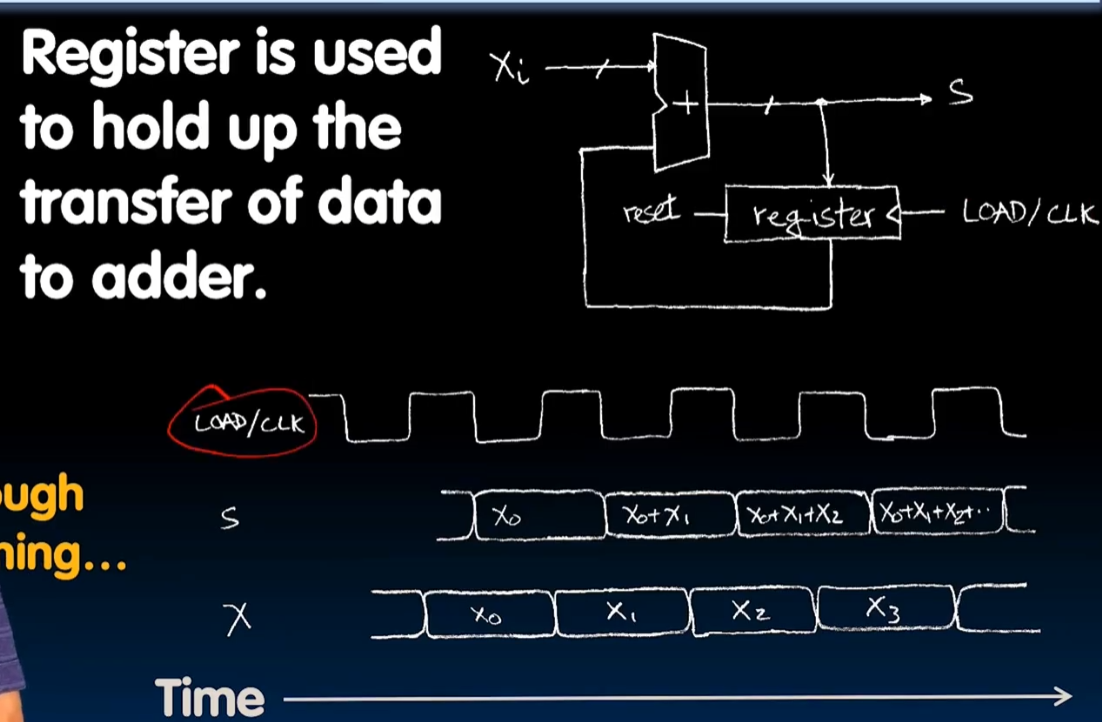 Register is used
to hold up the
transfer of data
to adder.
Xi
+
S
reset
register
LOAD/CLK
LOAD/CLK
ough
ning...
S
X0
X0+X1
X0+X1+X2
X0+X1+X2+..
X
X0
X1
X2
X3
Time